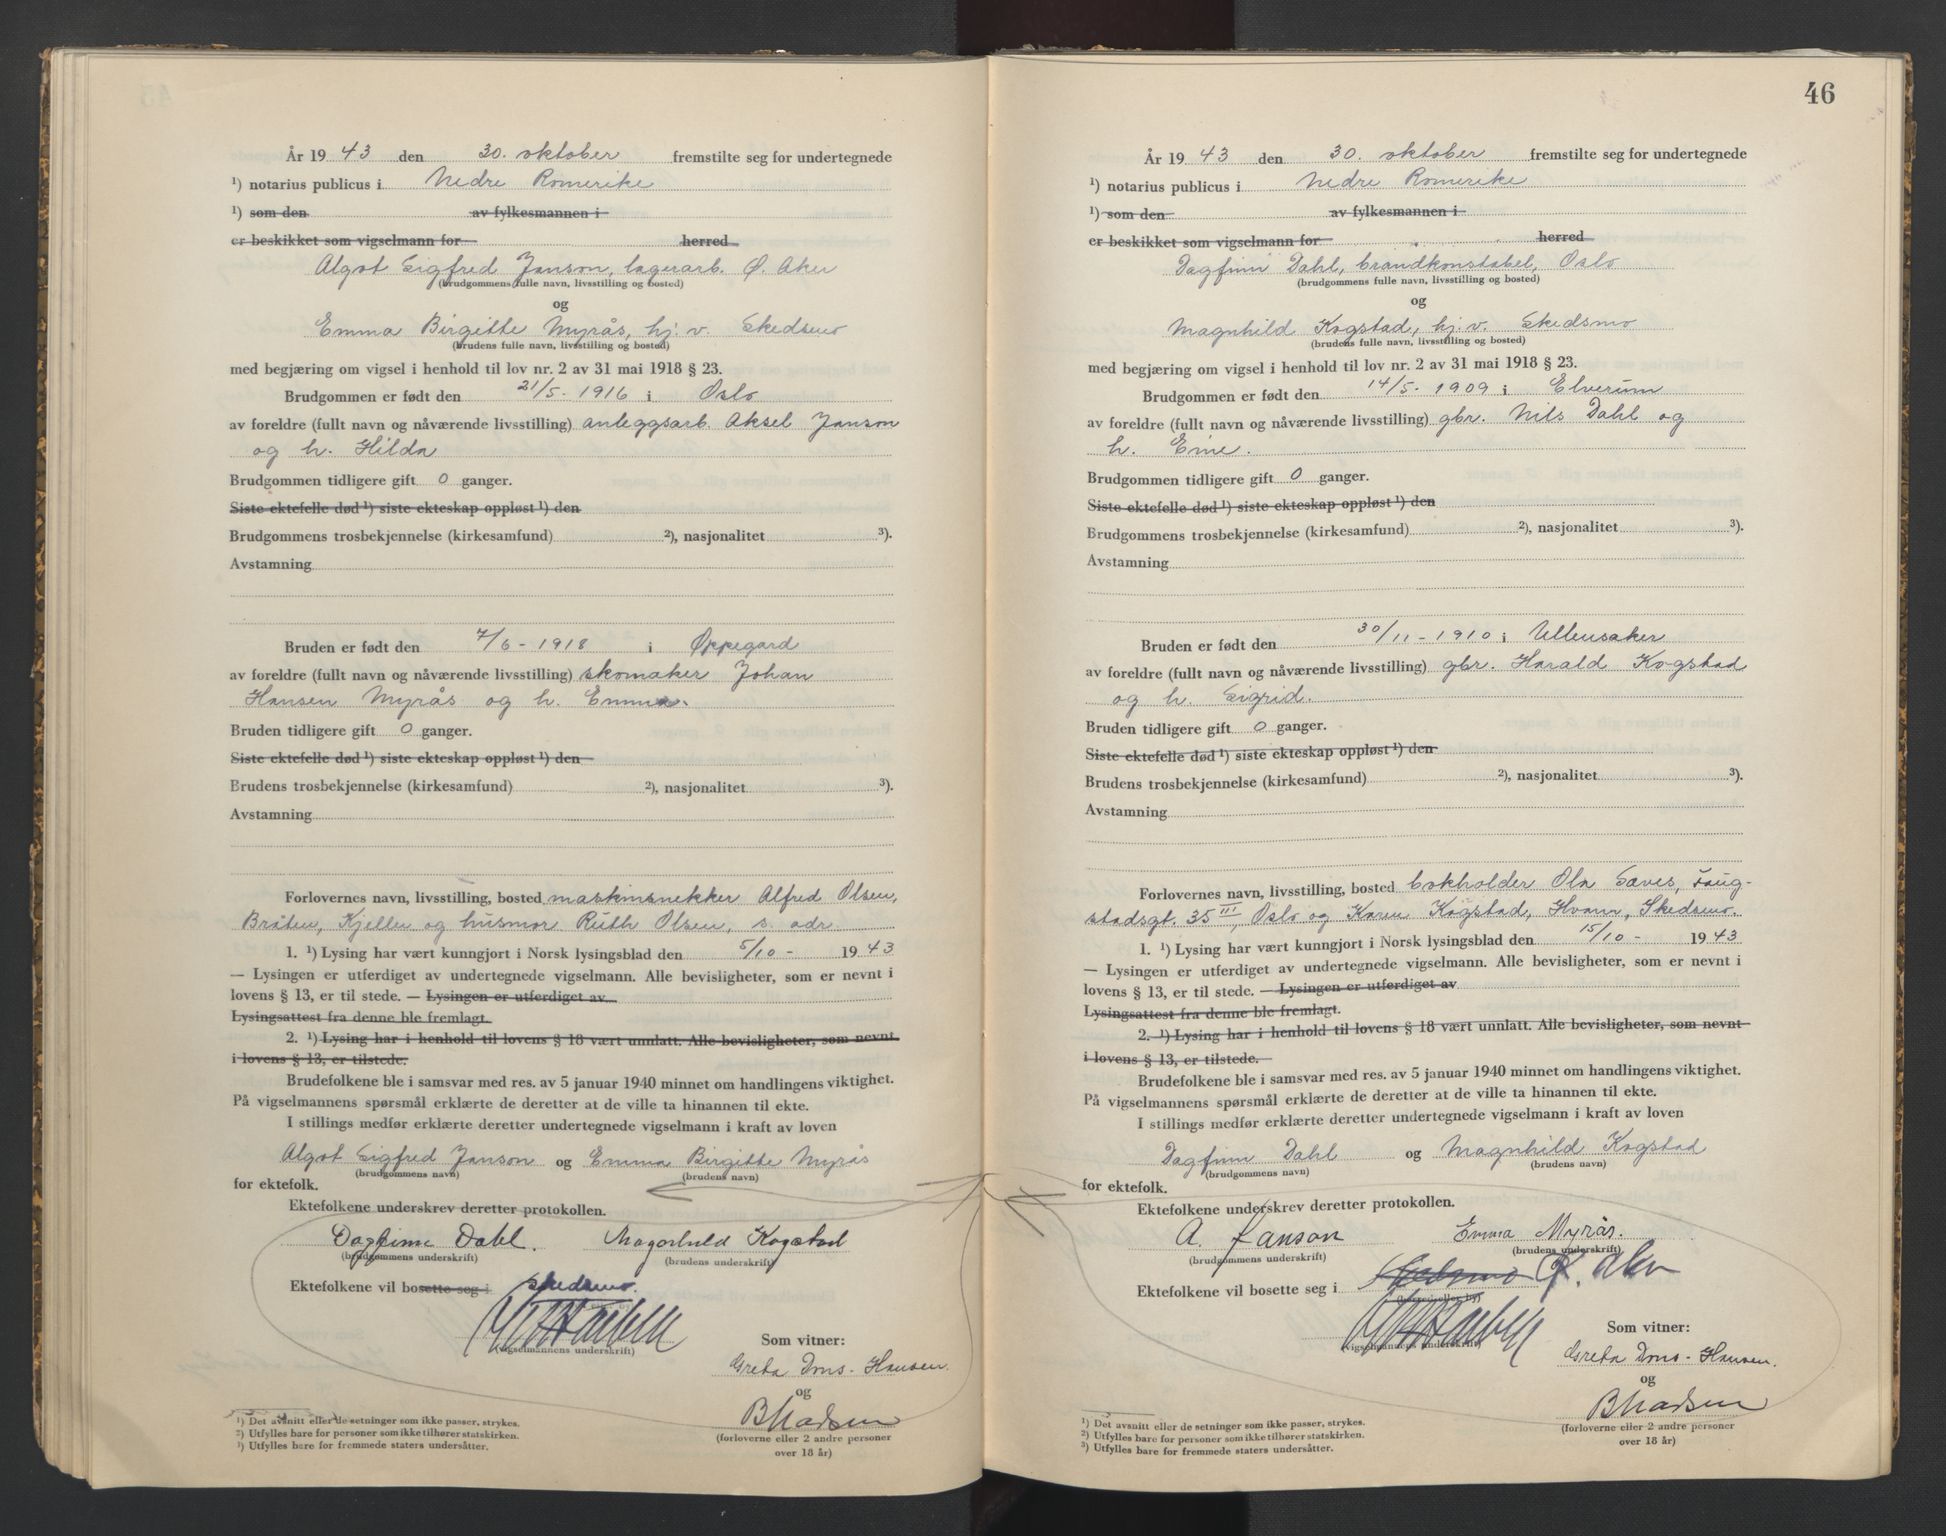 År 19 43 den 30. oktober fremstilte seg for undertegnede
¹) notarius publicus i Nedre Romerike
¹) som den av fylkesmannen i
er beskikket som vigselmann for herred
Algot Sigfred Janson, lagerarb. Ø. Aker
(brudgommens fulle navn, livsstilling og bosted)
og
Emma Birgitte Myrås, hj. v. Skedsmo
(brudens fulle navn, livsstilling og bosted)
med begjæring om vigsel i henhold til lov nr. 2 av 31 mai 1918 § 23.
Brudgommen er født den 21/5 - 1916 i Oslo
av foreldre (fullt navn og nåværende livsstilling) anleggsarb. Aksel Janson
og h. Hilda
Brudgommen tidligere gift 0 ganger.
Siste ektefelle død ¹) siste ekteskap oppløst ¹) den
Brudgommens trosbekjennelse (kirkesamfund) ²), nasjonalitet ³).
Avstamning
Bruden er født den 7/6 - 1918 i Oppegard
av foreldre (fullt navn og nåværende livsstilling) skomaker Johan
Hansen Myrås og h. Emma.
Bruden tidligere gift 0 ganger.
Siste ektefelle død ¹) siste ekteskap oppløst ¹) den
Brudens trosbekjennelse (kirkesamfund) ²), nasjonalitet ³).
Avstamning
Forlovernes navn, livsstilling, bosted maskinsnekker Alfred Olsen,
Bråten, Kjeller og husmor Ruth Olsen, s. adr
1. ¹) Lysing har vært kunngjort i Norsk lysingsblad den 5/10 - 19 43
— Lysingen er utferdiget av undertegnede vigselmann. Alle bevisligheter, som er nevnt i
lovens § 13, er til stede. — Lysingen er utferdiget av
Lysingsattest fra denne ble fremlagt.
2. ¹) Lysing har i henhold til lovens § 18 vært unnlatt. Alle bevisligheter, som nevnt
i lovens § 13, er tilstede.
Brudefolkene ble i samsvar med res. av 5 januar 1940 minnet om handlingens viktighet.
På vigselmannens spørsmål erklærte de deretter at de ville ta hinannen til ekte.
I stillings medfør erklærte deretter undertegnede vigselmann i kraft av loven
Algot Sigfred Janson og Emma Birgitte Myrås
(brudgommens navn) (brudens navn)
for ektefolk.
Ektefolkene underskrev deretter protokollen.
Dagfinn Dahl. Magnhild Kogstad
(brudgommens underskrift) (brudens underskrift)
Ektefolkene vil bosette seg i Skedsmo.
(vigselmannens underskrift)
Som vitner:
Greta Dons-Hansen.
og
B Madsen
(forloverne eller 2 andre personer
over 18 år)
¹) Det avsnitt eller de setninger som ikke passer, strykes.
²) Utfylles bare for personer som ikke tilhører statskirken.
³) Utfylles bare for fremmede staters undersåtter.
46
År 19 43 den 30. oktober fremstilte seg for undertegnede
¹) notarius publicus i Nedre Romerike
¹) som den av fylkesmannen i
er beskikket som vigselmann for herred
Dagfinn Dahl, brandkonstabel, Oslo
(brudgommens fulle navn, livsstilling og bosted)
og
Magnhild Kogstad, hj. v. Skedsmo
(brudens fulle navn, livsstilling og bosted)
med begjæring om vigsel i henhold til lov nr. 2 av 31 mai 1918 § 23.
Brudgommen er født den 14/5 - 1909 i Elverum
av foreldre (fullt navn og nåværende livsstilling) gbr. Nils Dahl og
h. Eine.
Brudgommen tidligere gift 0 ganger.
Siste ektefelle død ¹) siste ekteskap oppløst ¹) den
Brudgommens trosbekjennelse (kirkesamfund) ²), nasjonalitet ³).
Avstamning
Bruden er født den 30/11 - 1910 i Ullensaker
av foreldre (fullt navn og nåværende livsstilling) gbr. Harald Kogstad
og h. Sigrid.
Bruden tidligere gift 0 ganger.
Siste ektefelle død ¹) siste ekteskap oppløst ¹) den
Brudens trosbekjennelse (kirkesamfund) ²), nasjonalitet ³).
Avstamning
Forlovernes navn, livsstilling, bosted bokholder Ola
stadsgt. 35 III, Oslo og Karen Kogstad, Hvam, Skedsmo.
1. ¹) Lysing har vært kunngjort i Norsk lysingsblad den 15/10 - 19 43
— Lysingen er utferdiget av undertegnede vigselmann. Alle bevisligheter, som er nevnt i
lovens § 13, er til stede. — Lysingen er utferdiget av
Lysingsattest fra denne ble fremlagt.
2. ¹) Lysing har i henhold til lovens § 18 vært unnlatt. Alle bevisligheter, som nevnt
i lovens § 13, er tilstede.
Brudefolkene ble i samsvar med res. av 5 januar 1940 minnet om handlingens viktighet.
På vigselmannens spørsmål erklærte de deretter at de ville ta hinannen til ekte.
I stillings medfør erklærte deretter undertegnede vigselmann i kraft av loven
Dagfinn Dahl og Magnhild Kogstad
(brudgommens navn) (brudens navn)
for ektefolk.
Ektefolkene underskrev deretter protokollen.
A. Janson Emma Myrås.
(brudgommens underskrift) (brudens underskrift)
Ektefolkene vil bosette seg i Skedsmo Ø. Aker
(vigselmannens underskrift)
Som vitner:
Greta Dons-Hansen.
og
B Madsen
(forloverne eller 2 andre personer
over 18 år)
¹) Det avsnitt eller de setninger som ikke passer, strykes.
²) Utfylles bare for personer som ikke tilhører statskirken.
³) Utfylles bare for fremmede staters undersåtter.